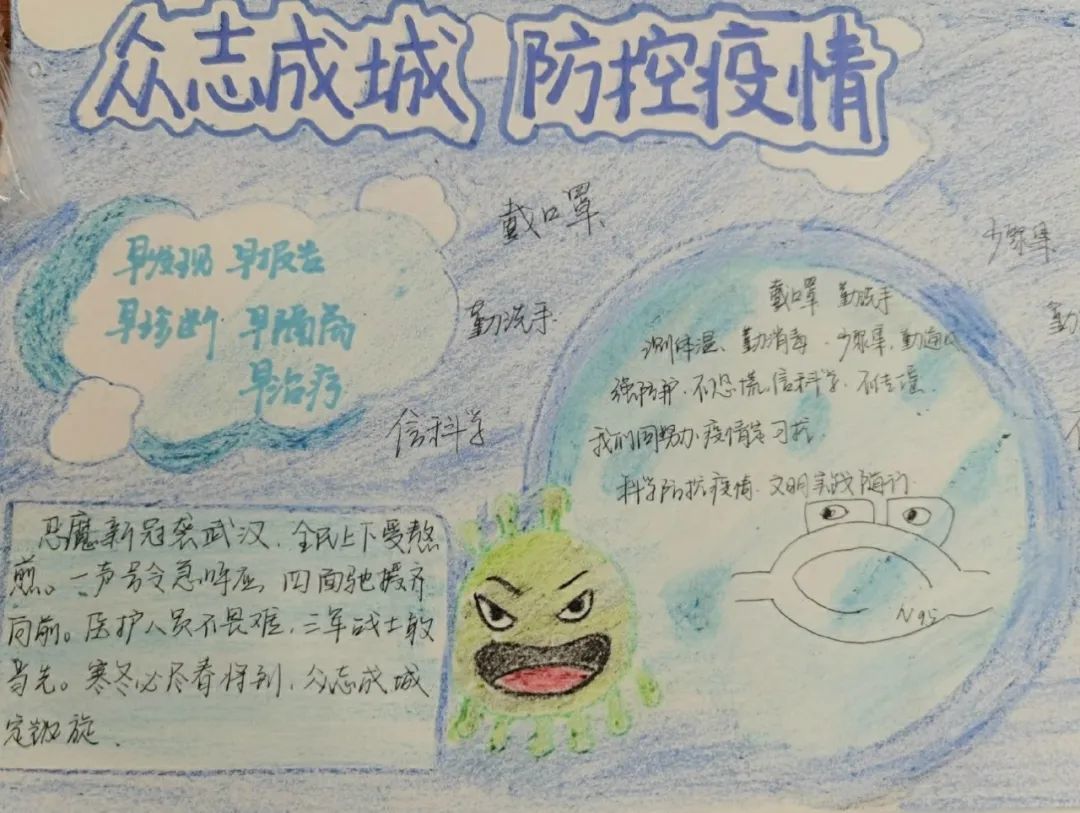 众志成城 防控疫情
早发现 早报告
早诊断 早隔离
早治疗
戴口罩
勤洗手
信科学
少聚集
勤
戴口罩 勤洗手
测体温、勤消毒、少聚集,勤通
强防护、不恐慌,信科学、不传谣
我们同努力、疫情定
科学防抗疫情、文明实践随行
N95
恶魔新冠袭武汉,全民上下受熬
煎。一声号令急呼应,四面驰援齐
向前。医护人员不畏难,三军战士敢
当先。寒冬必尽春将到,众志成城
定凯旋。